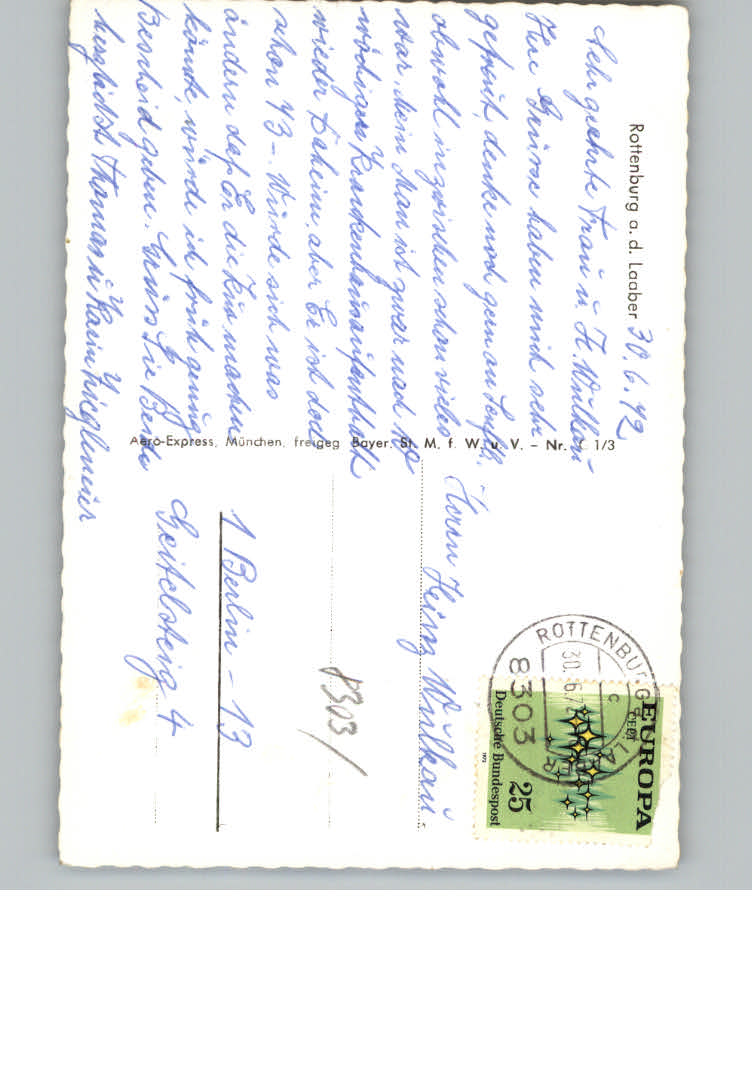 Rottenburg a. d. Laaber 30.6.72
Sehr geehrte Frau u. H. Wilkau
Ihre Grüsse haben mich sehr
gefreut, denke noch gern an
obwohl inzwischen schon vieles
war. Mein Man ist zwar nach
wöchigen Krankenhausaufenthalt
wieder Daheim, aber Er ist doch
schon 73 -. Würde sich was
ändern daß Er die Kur machen
könnte, würde ich früh genug
Bescheid geben. Grüss Sie Beide
herzlichst Thomas u. Karin
Aero-Express, München, freigeg. Bayer. St. M. f. W. u. V. – Nr. G 1/3
Herrn Heinz Wilkau
8303/
1 Berlin - 13
Geitelsteig 4
EUROPA
CEPT
25
Deutsche Bundespost
1972
ROTTENBURG a d LAABER
30.6.72
c
8303